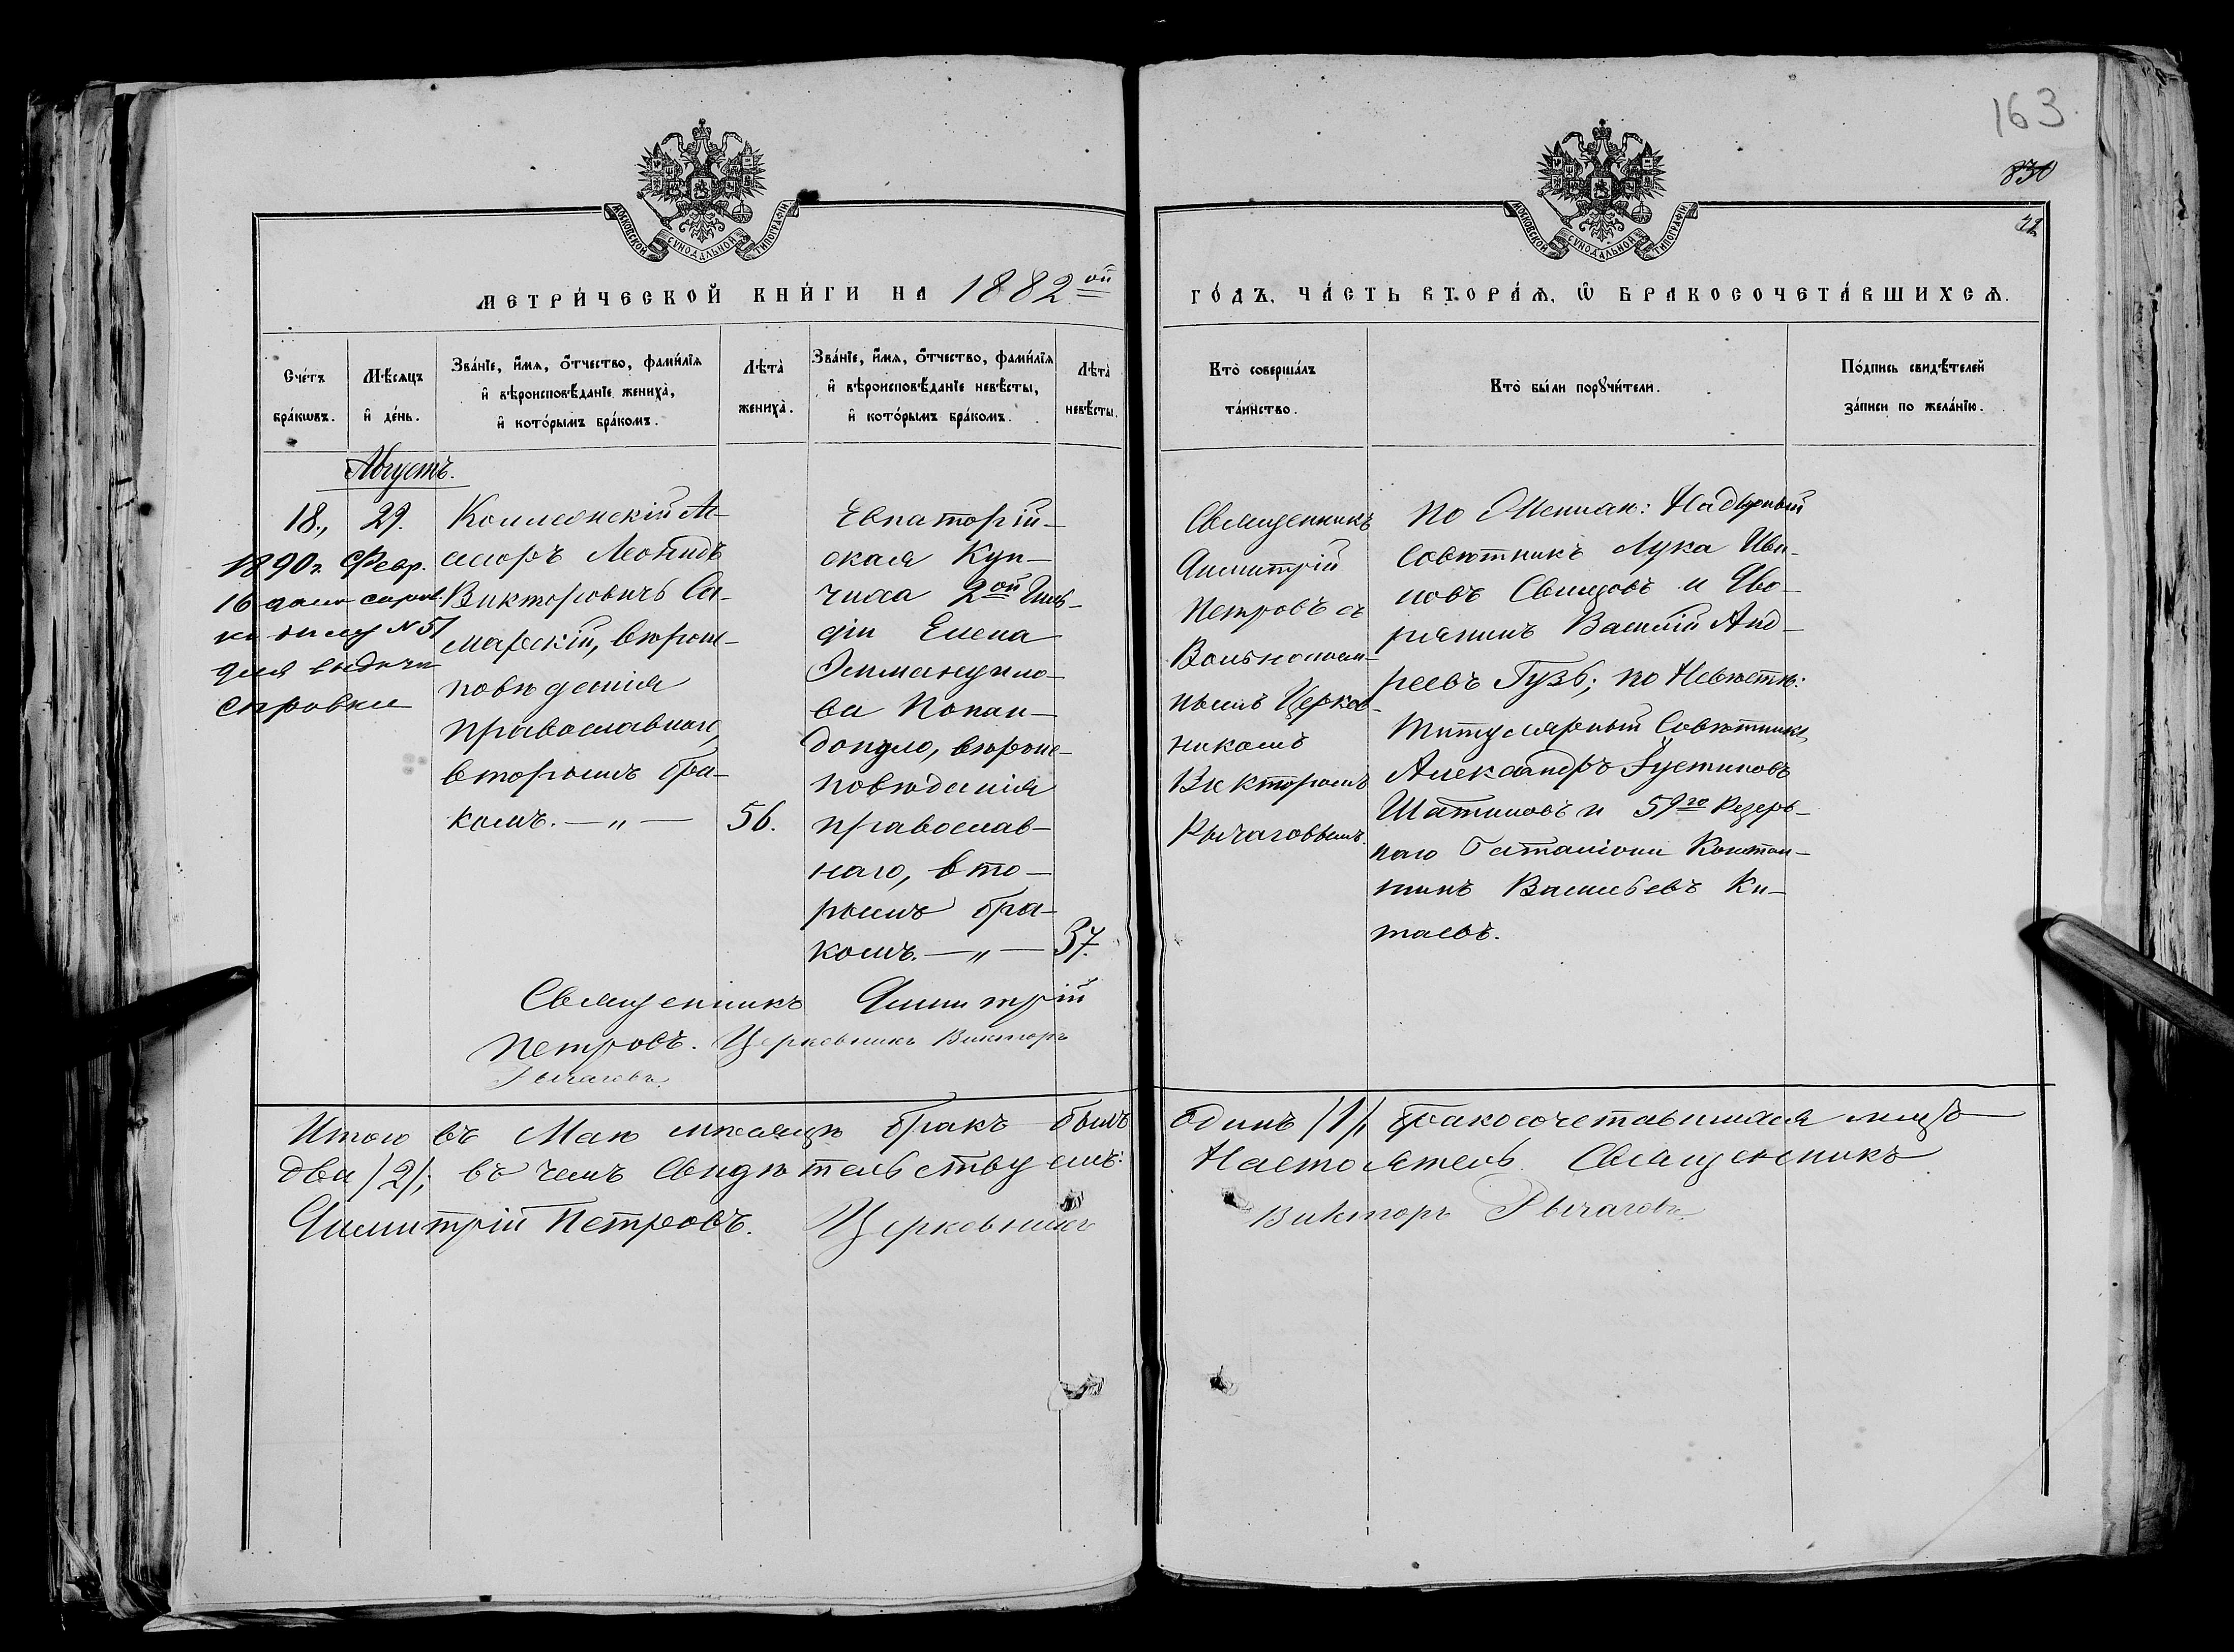 163
830
42
МОСКОВСКОЙ СѴНОДАЛЬНОЙ ТИПОГРАФІИ
МОСКОВСКОЙ СѴНОДАЛЬНОЙ ТИПОГРАФІИ
МЕТРИ́ЧЕСКОЙ КНИ́ГИ НА 1882ой
ГО́ДЪ, ЧА́СТЬ ВТОРА́Ѧ, Ѡ҆ БРАКОСОЧЕТА́ВШИХСѦ.
Сче́тъ
бра́кѡвъ.
Мѣ́сѧцъ
и҆ де́нь.
Зва́нїе, и҆́мѧ, ѻ҆́тчество, фами́лїѧ
и҆ вѣроисповѣ́данїе жениха̀,
и҆ кото́рымъ бра́комъ.
Лѣта̀
жениха̀.
Зва́нїе, и҆́мѧ, ѻ҆́тчество, фами́лїѧ
и҆ вѣроисповѣ́данїе невѣ́сты,
и҆ кото́рымъ бра́комъ.
Лѣта̀
невѣ́сты.
Кто̀ соверша́лъ
та́инство.
Кто̀ бы́ли порꙋчи́тели.
По́дпись свидѣ́телей
за́писи по жела́нїю.
Августъ.
18., 29.
1890 г. Февр.
16 дана справ.
къ дѣлу № 51
для выдачи
справки
Коллежскій А-
сессоръ Леонидъ
Викторовичъ Са-
марскій, вѣроис-
повѣданія
православнаго,
вторымъ бра-
комъ. — „ —
56.
Евпаторій-
ская Куп-
чиха 2ой Гиль-
діи Елена
Эммануило-
ва Попан-
допуло, вѣроис-
повѣданія
православ-
наго, вто-
рымъ бра-
комъ. — „ —
37.
Священникъ
Димитрій
Петровъ съ
Вольнонаем-
нымъ Церков-
никомъ
Викторомъ
Рычаговымъ.
По Женихѣ: Надворный
Совѣтникъ Лука Ива-
новъ Свищовъ и Дво-
рянинъ Василій Анд-
реевъ Гузь; по Невѣстѣ:
Титулярный Совѣтникъ
Александръ Густиновъ
Шатиловъ и 59го Резерв-
наго Баталіона Капитан-
нинъ Васильевъ Ки-
таевъ.
Священникъ Димитрій
Петровъ. Церковникъ Викторъ
Рычаговъ
Итого въ Маѣ мѣсяцѣ бракъ былъ
одинъ /1/, бракосочетавшихся лицъ
два /2/; въ чемъ свидѣтельствуемъ:
Настоятель Священникъ
Димитрій Петровъ. Церковникъ
Викторъ Рычаговъ